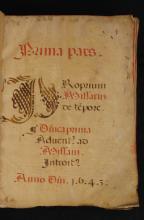 Prima pars.
Proprium
Missarũ
de tẽpore
Dñica prima
Aduentꝰ ad
Missam
Introitꝰ
Anno Dñi. 1.6.4.3.